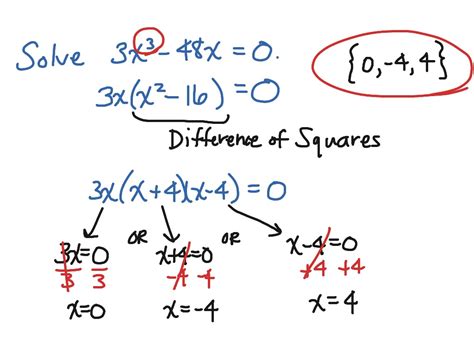 Solve 3x³ - 48x = 0.
{0, -4, 4}
3x(x² - 16) = 0
Difference of Squares
3x(x+4)(x-4) = 0
3x=0 OR x+4=0 OR x-4=0
3 3 -4 -4 +4 +4
x=0 x=-4 x=4